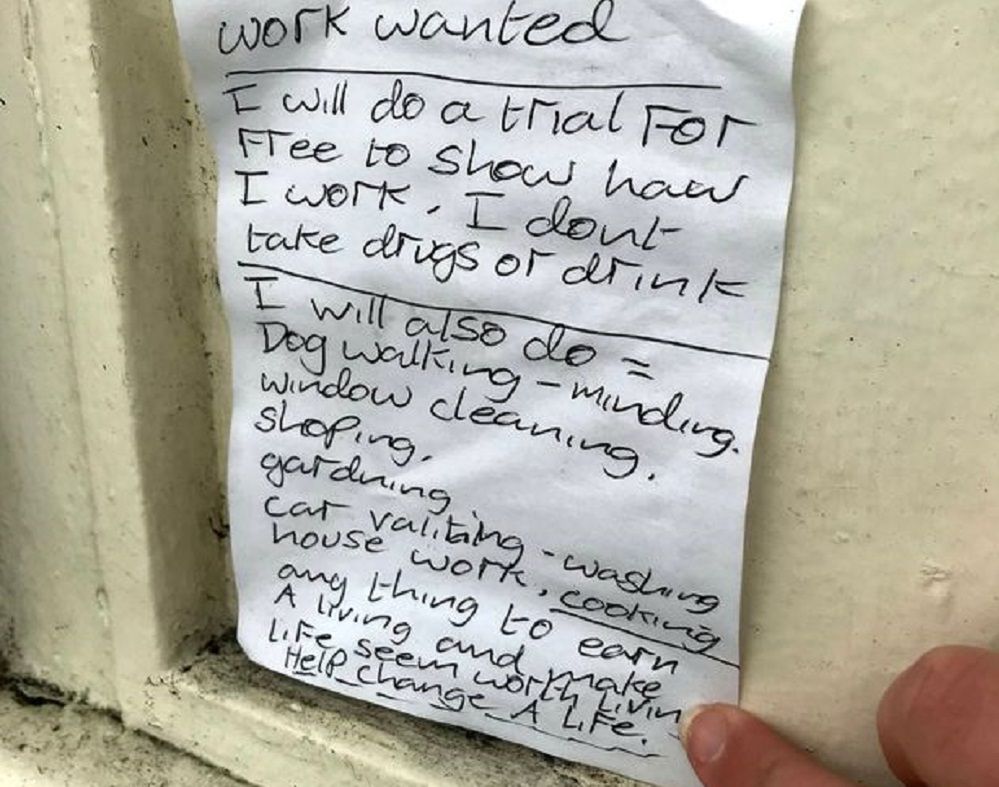 work wanted
I will do a trial FOr
Free to show how
I work. I dont
take drugs or drink
I will also do =
Dog walking - minding.
window cleaning.
shoping.
gardning
car valiting - washing
house work. cooking
any thing to earn
A living and make
LiFe seem worth Living
HelP change A LiFe.